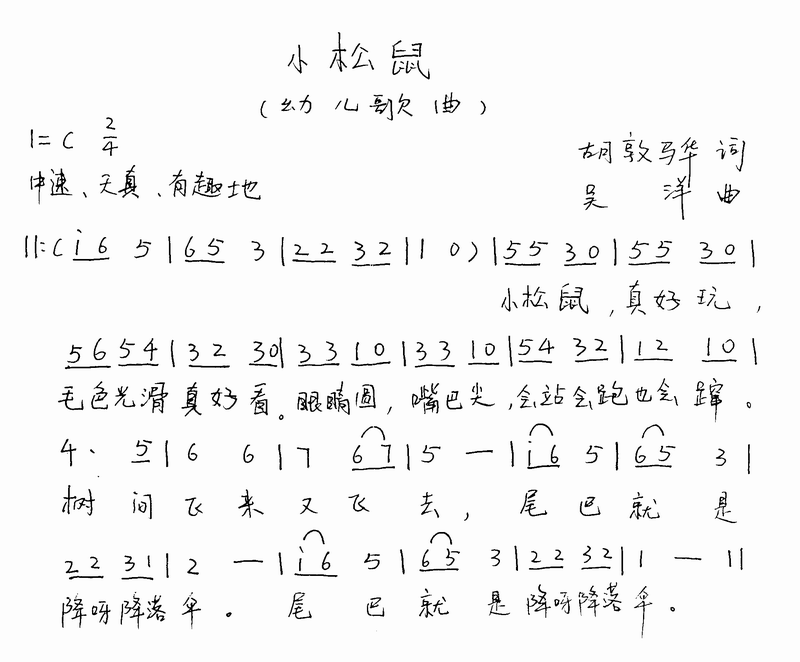 小松鼠
（幼儿歌曲）
1=C 2/4
胡敦骅 词
中速、天真、有趣地
吴洋 曲
||:(i6 5|65 3|22 32|1 0)|55 30|55 30|
小松鼠,真好玩,
56 54|32 30|33 10|33 10|54 32|12 10|
毛色光滑真好看。眼睛圆,嘴巴尖,会站会跑也会蹿。
4· 5|6 6|7 67|5 —|i6 5|65 3|
树间飞来又飞去,尾巴就是
22 31|2 —|i6 5|65 3|22 32|1 — ||
降呀降落伞。尾巴就是降呀降落伞。